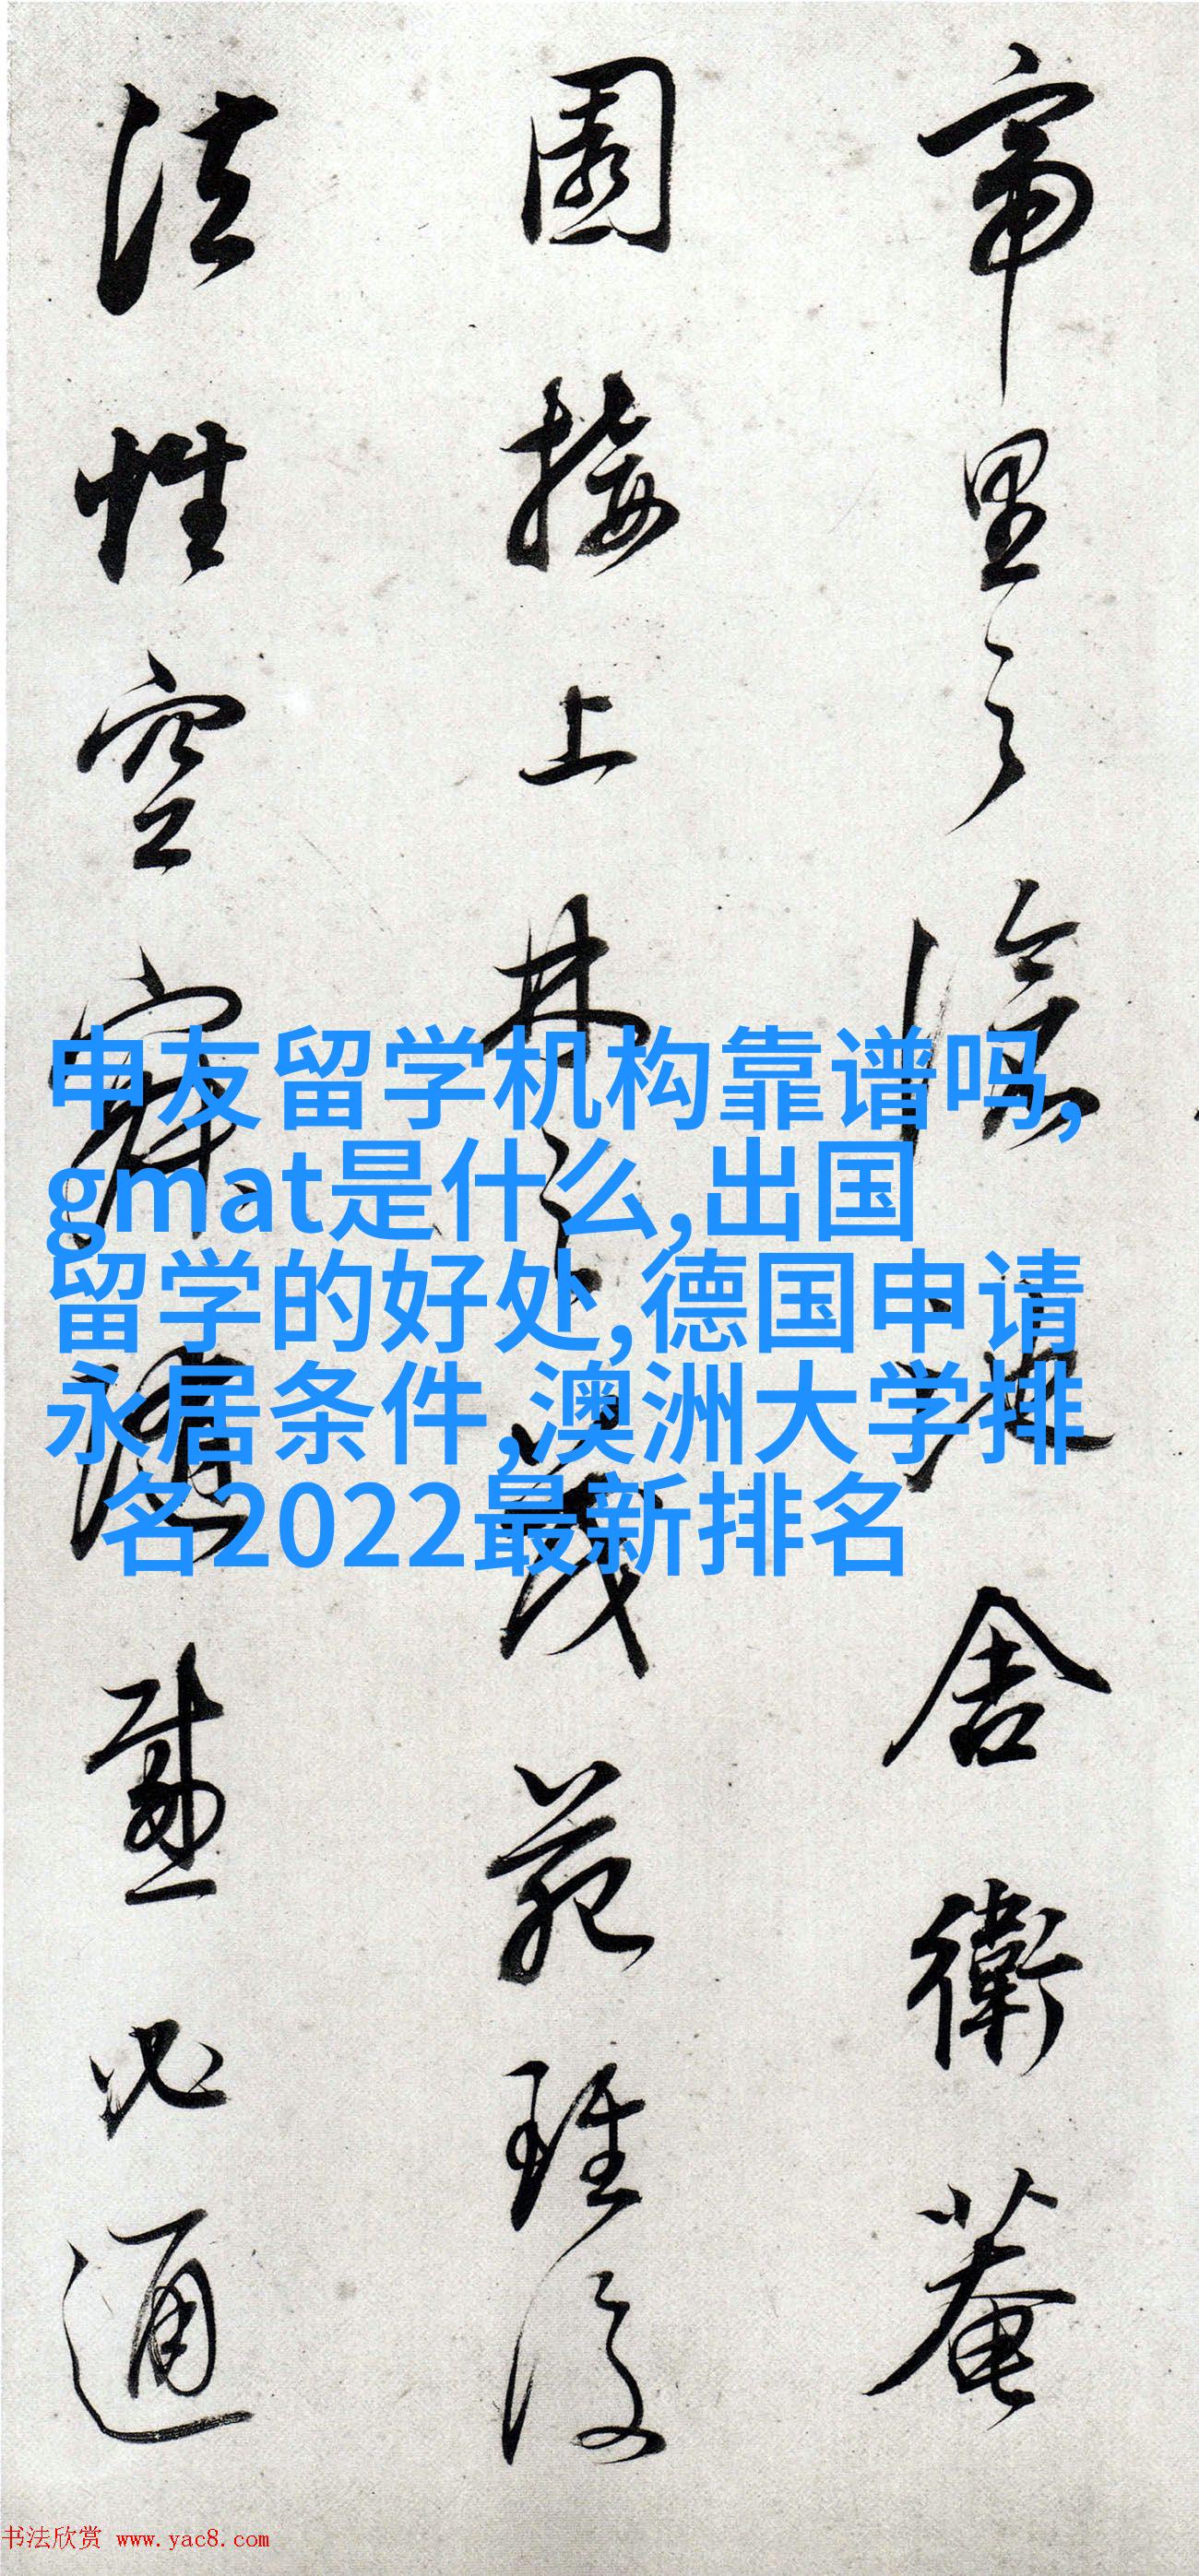 帝里之津地舍衛菴
園接上林之茂苑琎後
法性空寂隨感必通
申友留学机构靠谱吗,
gmat是什么,出国
留学的好处,德国申请
永居条件,澳洲大学排
名2022最新排名
书法欣赏 www.yac8.com